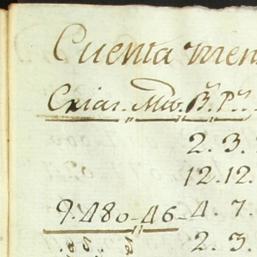 Cuenta men
Criar. Mw. B.s P.s
2. 3.
12. 12.
9. 480 - 46 - 4. 7.
2. 3.